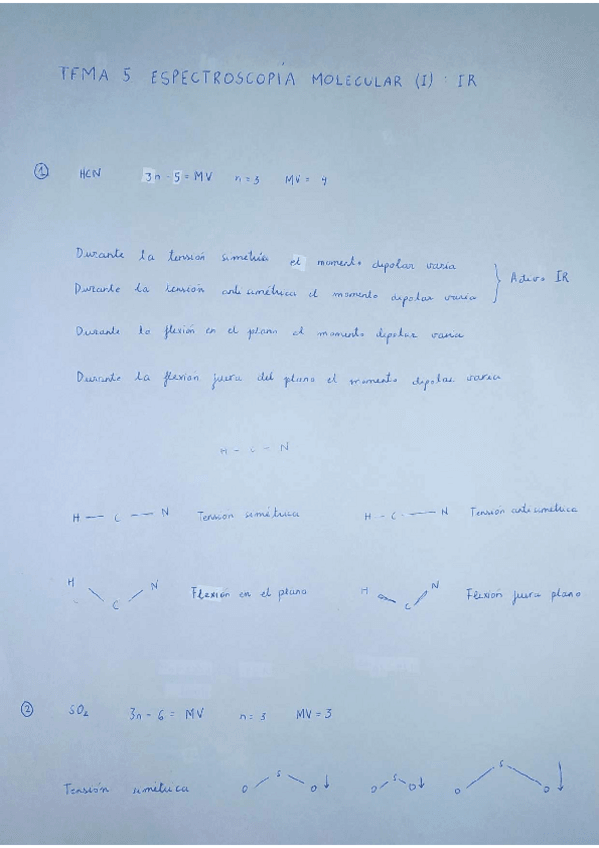 TEMA 5 ESPECTROSCOPÍA MOLECULAR (I) : IR
① HCN 3n - 5 = MV n = 3 MV = 4
Durante la tensión simetría el momento dipolar varía
Durante la tensión antisimétrica el momento dipolar varía } Activo IR
Durante la flexión en el plano el momento dipolar varía
Durante la flexión fuera del plano el momento dipolar varía
H - C - N
H — C — N Tensión simétrica H - C — N Tensión antisimétrica
H C N Flexión en el plano H C N Flexión fuera plano
② SO2 3n - 6 = MV n = 3 MV = 3
Tensión simétrica O S O ↓ O S O ↓ O S O ↓